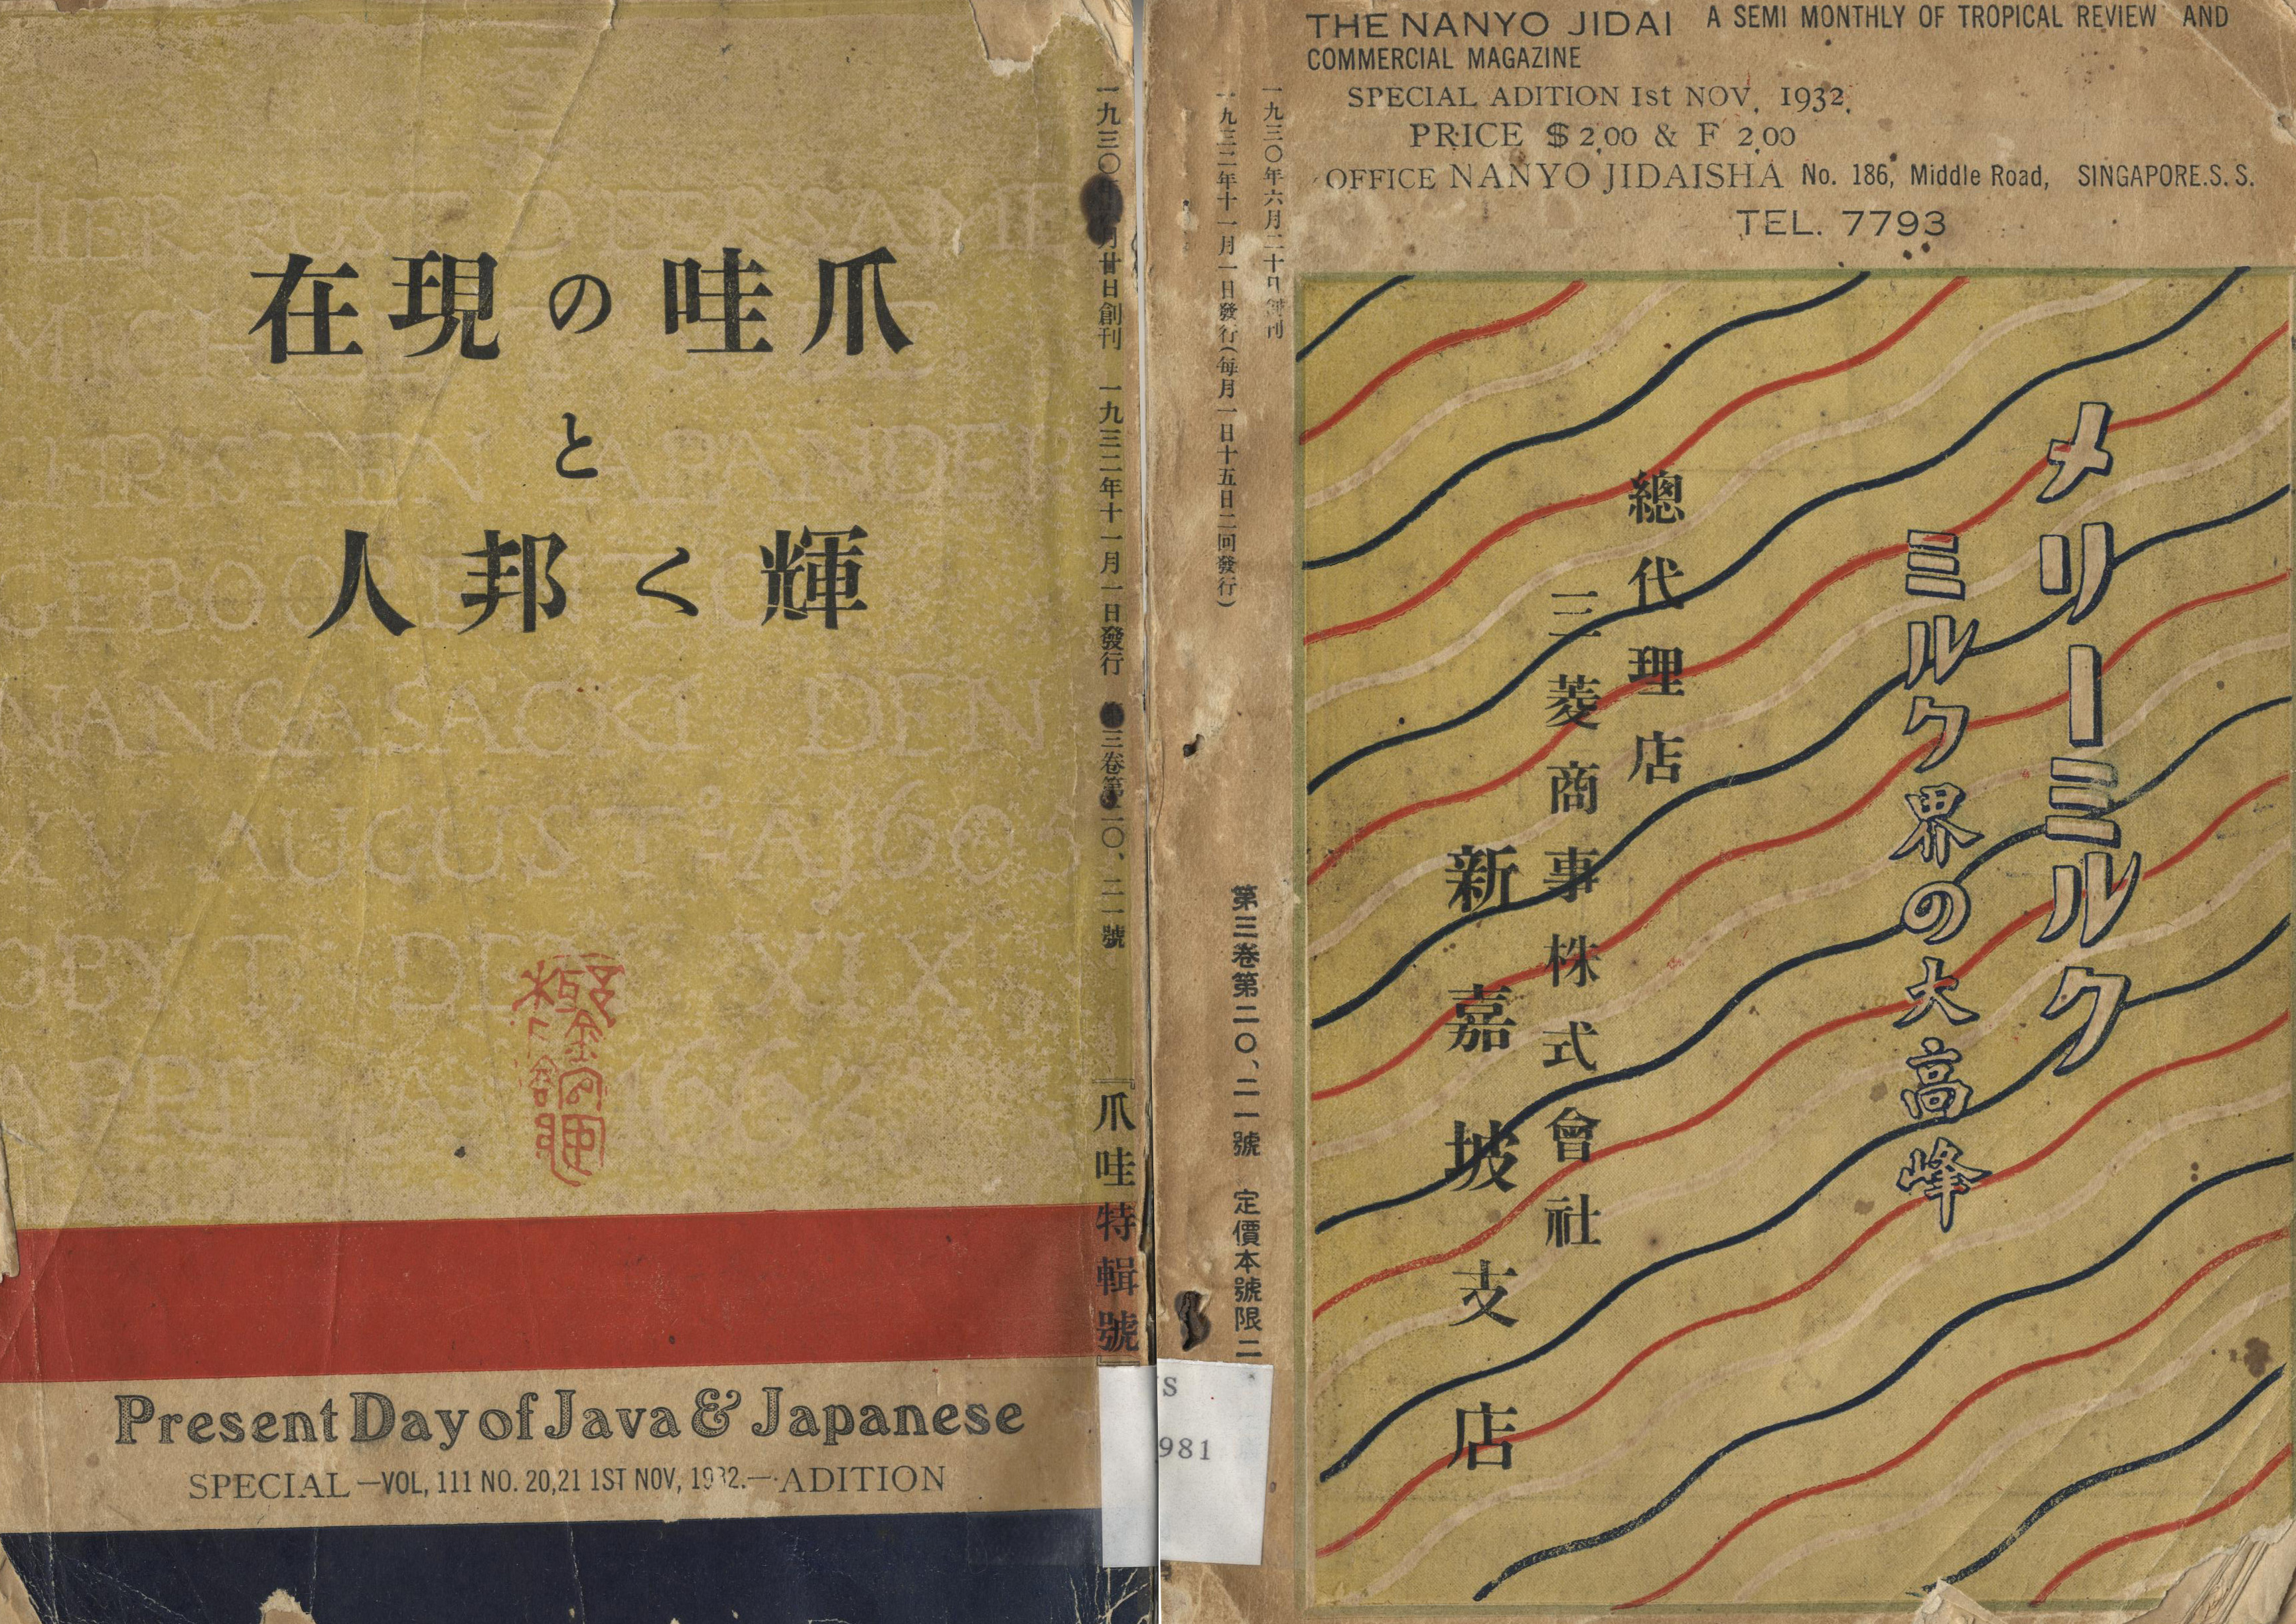 爪哇の現在
と
輝く邦人
HIER RUST D EERSAME
CHRISTEN JAPANDER
GEBOOREN TOT
NANGASACKI DEN
XV AUGUST A 1605
OBYT DEN XIX
APRIL A 1663
Present Day of Java & Japanese
SPECIAL —VOL, 111 NO. 20,21 1ST NOV, 1932.— ADITION
一九三〇年六月廿日創刊 一九三二年十一月一日發行 第三卷第二〇、二一號 『爪哇特輯號』
一九三〇年六月二十日創刊
一九三二年十一月一日發行(每月一日十五日二回發行)
第三卷第二〇、二一號 定價本號限二
S
981
THE NANYO JIDAI A SEMI MONTHLY OF TROPICAL REVIEW AND
COMMERCIAL MAGAZINE
SPECIAL ADITION 1st NOV. 1932.
PRICE $ 2.00 & F 2.00
OFFICE NANYO JIDAISHA No. 186, Middle Road, SINGAPORE.S.S.
TEL. 7793
メリーミルク
ミルク界の大高峰
總代理店
三菱商事株式會社
新嘉坡支店